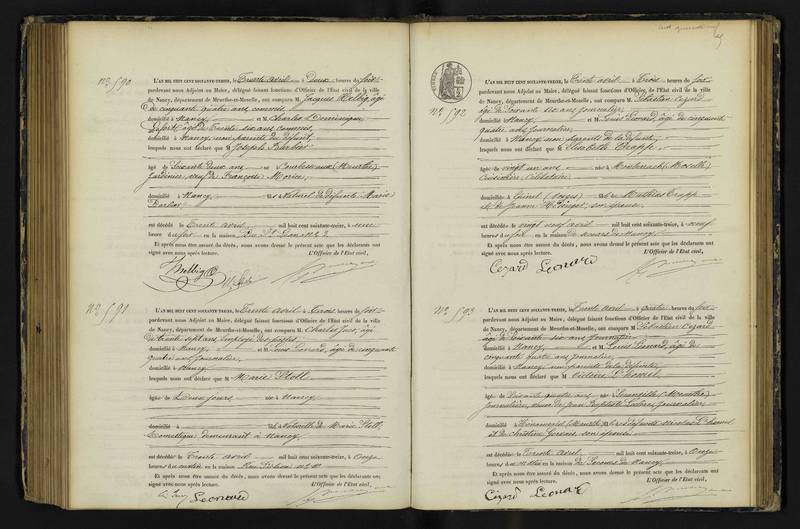 No. 590
L'AN MIL HUIT CENT SOIXANTE-TREIZE, le Trente avril à Deux heures du soir
pardevant nous Adjoint au Maire, délégué faisant fonctions d'Officier de l'Etat civil de la ville
de Nancy, département de Meurthe-et-Moselle, ont comparu M. Jacques Helbig, âgé
de cinquante quatre ans commis
domicilié à Nancy et M. Charles Dominique
âgé de Trente six ans Commis,
domicilié à Nancy non parents du défunt,
lesquels nous ont déclaré que Joseph Barbier
âgé de Soixante deux ans né à Courbesseaux (Meurthe)
Jardinier, veuf de Françoise Morice,
domicilié à Nancy naturel de défunte Marie
Barbier
est décédé le Trente avril mil huit cent soixante-treize, à une
heure du soir en la maison Rue St
Et après nous être assuré du décès, nous avons dressé le présent acte que les déclarants ont
signé avec nous après lecture. L'Officier de l'Etat civil,
Helbig
No. 591
L'AN MIL HUIT CENT SOIXANTE-TREIZE, le Trente avril à trois heures du soir
pardevant nous Adjoint au Maire, délégué faisant fonctions d'Officier de l'Etat civil de la ville
de Nancy, département de Meurthe-et-Moselle, ont comparu M. Charles âgé
de trente sept ans employé des postes
domicilié à Nancy et M. Louis Léonard, âgé de cinquante
quatre ans journalier,
domicilié à Nancy
lesquels nous ont déclaré que Marie Stoll
âgée de Deux jours née à Nancy
domiciliée à naturelle de Marie Stoll
Domestique demeurant à Nancy
est décédée le Trente avril mil huit cent soixante-treize, à Onze
heures du matin en la maison Rue
Et après nous être assuré du décès, nous avons dressé le présent acte que les déclarants ont
signé avec nous après lecture. L'Officier de l'Etat civil,
Leonard
No. 592
L'AN MIL HUIT CENT SOIXANTE-TREIZE, le Trente avril à Trois heures du soir
pardevant nous Adjoint au Maire, délégué faisant fonctions d'Officier de l'Etat civil de la ville
de Nancy, département de Meurthe-et-Moselle, ont comparu M. Sébastien Cezard
âgé de Soixante six ans journalier,
domicilié à Nancy et M. Louis Léonard, âgé de cinquante
quatre ans journalier,
domicilié à Nancy non parents de la défunte,
lesquels nous ont déclaré que Elisabeth Trapp
âgée de vingt un ans née à (Moselle)
Cuisinière, Célibataire
domiciliée à Epinal (Vosges) fille de Mathias Trapp
et de Jeanne son épouse
est décédée le vingt neuf avril mil huit cent soixante-treize, à neuf
heures du soir en la maison de Secours de Nancy
Et après nous être assuré du décès, nous avons dressé le présent acte que les déclarants ont
signé avec nous après lecture. L'Officier de l'Etat civil,
Cezard Leonard
No. 593
L'AN MIL HUIT CENT SOIXANTE-TREIZE, le Trente avril à quatre heures du soir
pardevant nous Adjoint au Maire, délégué faisant fonctions d'Officier de l'Etat civil de la ville
de Nancy, département de Meurthe-et-Moselle, ont comparu M. Sébastien Cezard
âgé de Soixante six ans journalier
domicilié à Nancy et M. Louis Léonard, âgé de
cinquante quatre ans journalier,
domicilié à Nancy non parents de la défunte,
lesquels nous ont déclaré que Victoire
âgée de quatre ans née à (Meurthe)
journalière, veuve de Jean Baptiste journalier
domiciliée à (Meurthe)
et de Christine son épouse
est décédée le Trente avril mil huit cent soixante-treize, à Onze
heures du matin en la maison de Secours de Nancy
Et après nous être assuré du décès, nous avons dressé le présent acte que les déclarants ont
signé avec nous après lecture. L'Officier de l'Etat civil,
Cezard Leonard